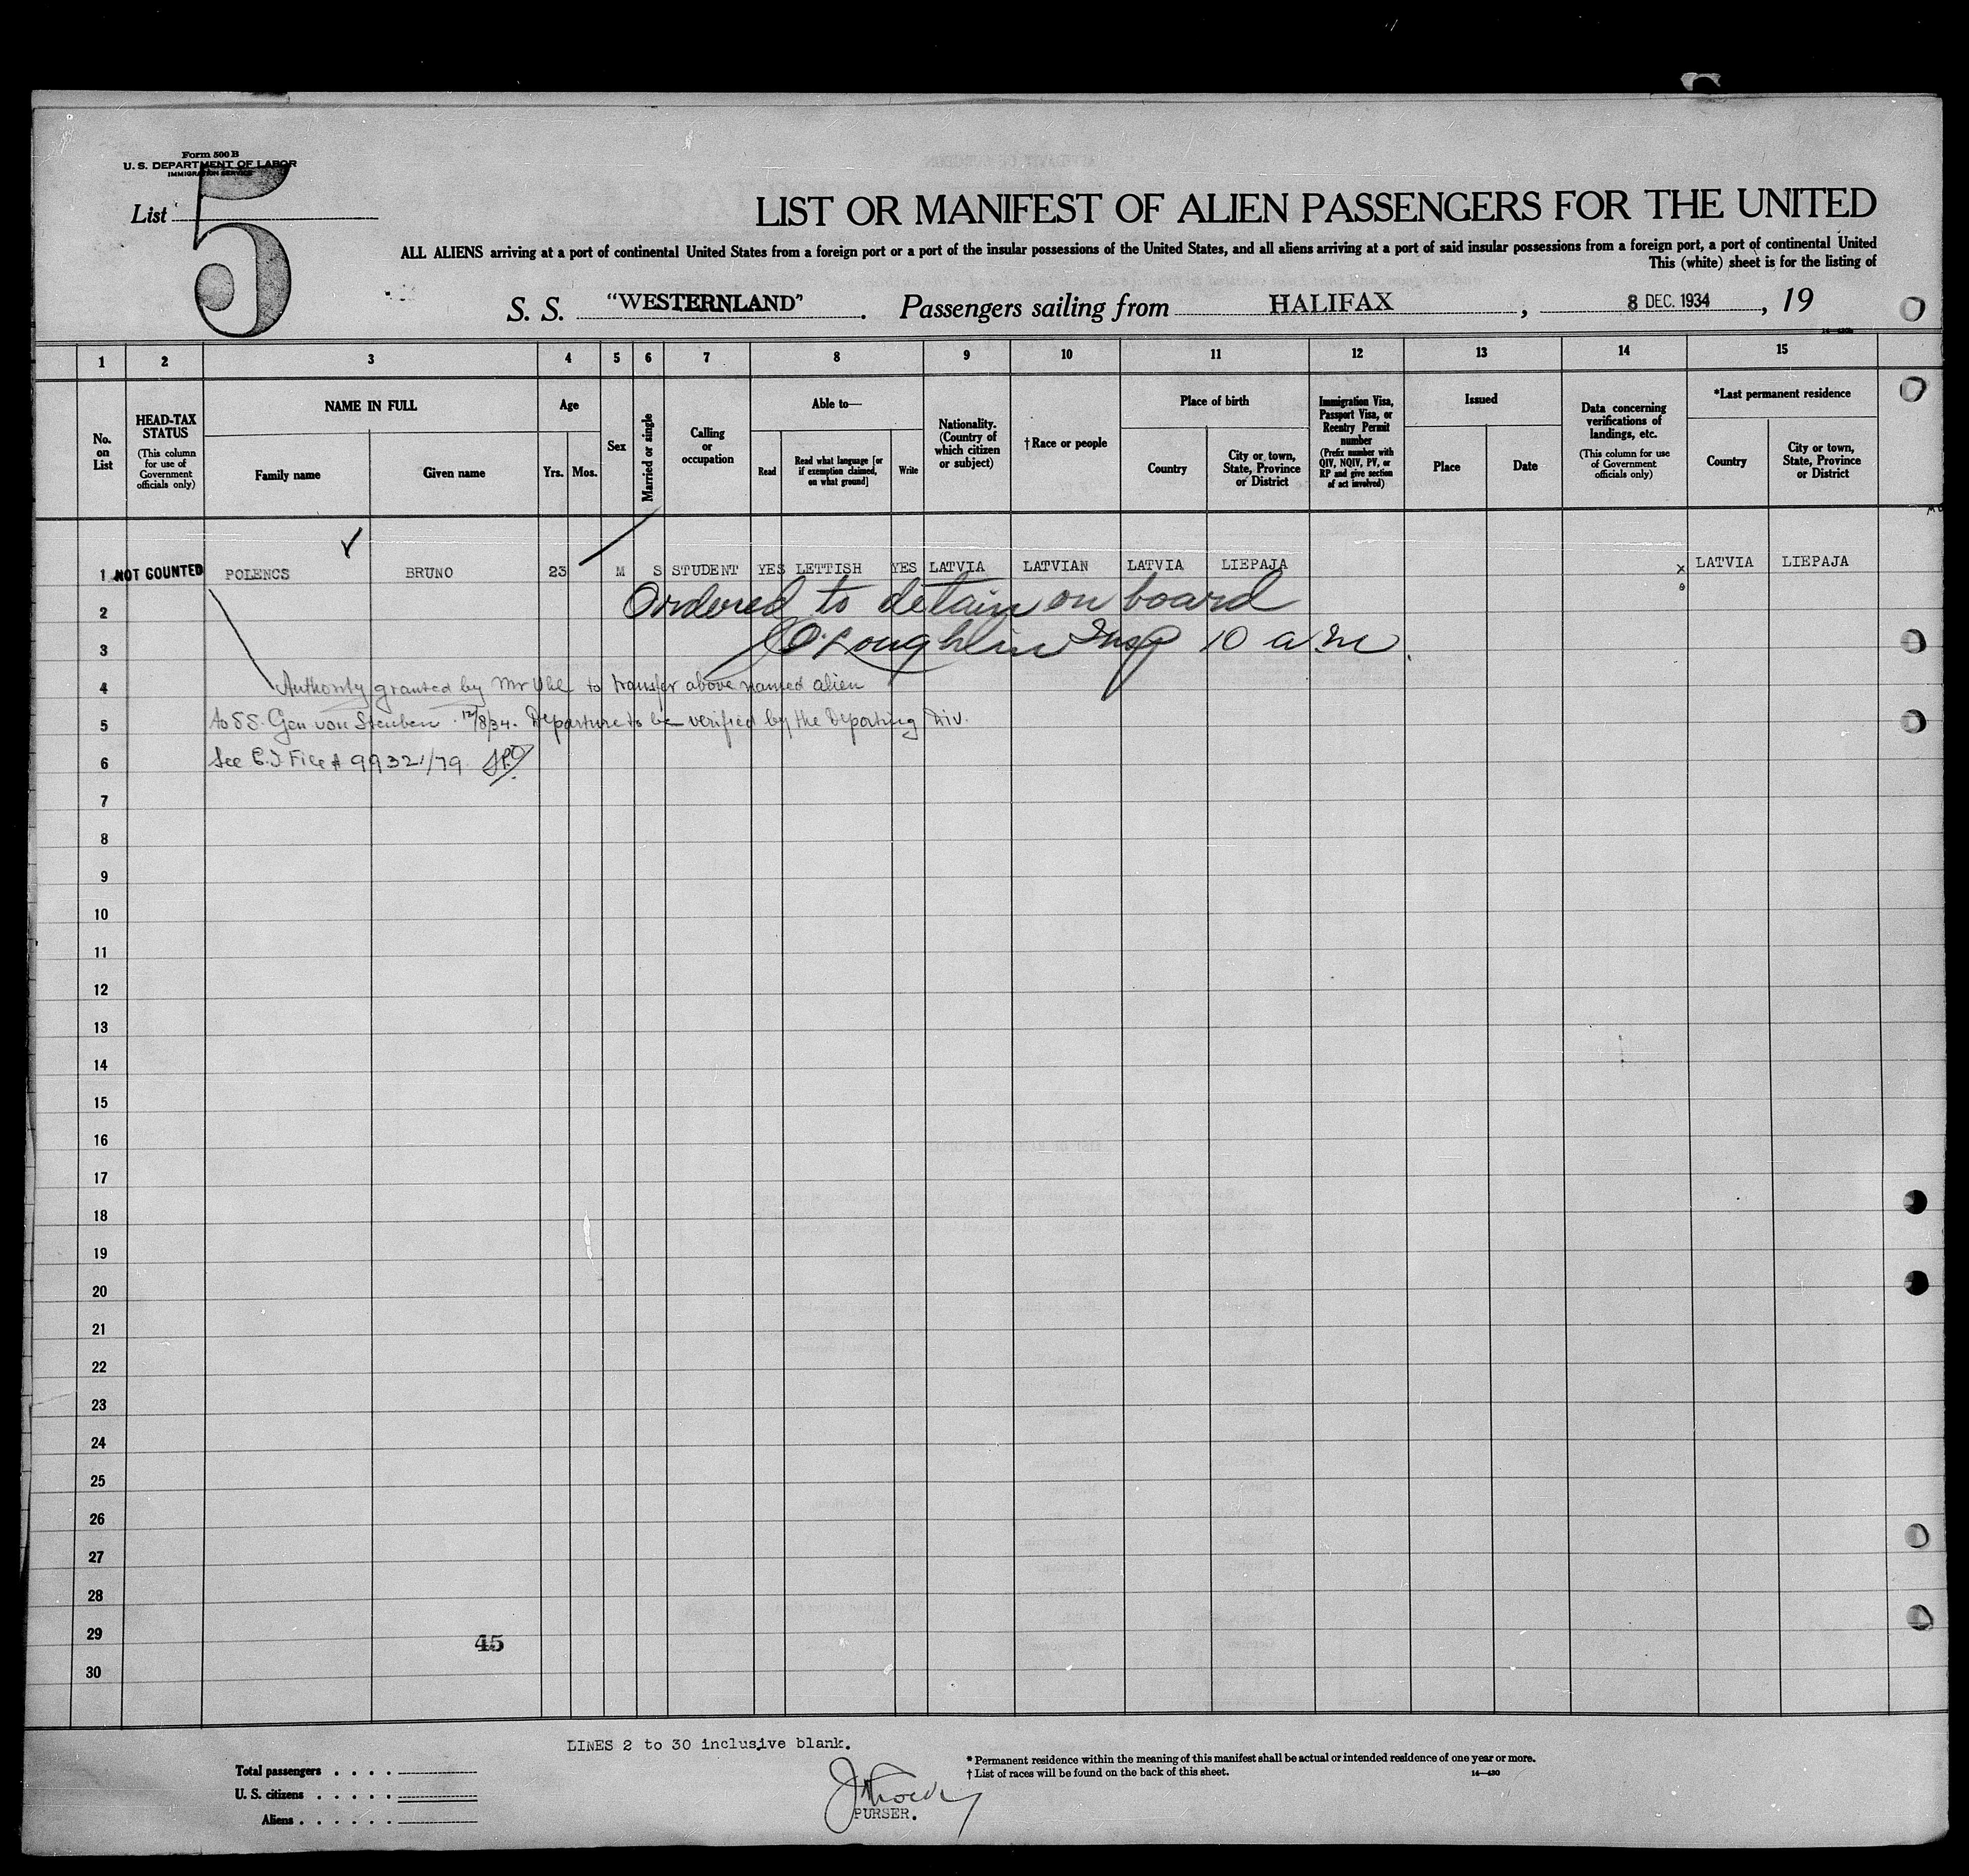 Form 500 B
U. S. DEPARTMENT OF LABOR
IMMIGRATION SERVICE
List 5
LIST OR MANIFEST OF ALIEN PASSENGERS FOR THE UNITED
ALL ALIENS arriving at a port of continental United States from a foreign port or a port of the insular possessions of the United States, and all aliens arriving at a port of said insular possessions from a foreign port, a port of continental United
This (white) sheet is for the listing of
S. S. "WESTERNLAND". Passengers sailing from HALIFAX, 8 DEC. 1934, 19
1 2 3 4 5 6 7 8 9 10 11 12 13 14 15
No. on List
HEAD-TAX STATUS
(This column for use of Government officials only)
NAME IN FULL
Family name
Given name
Age
Yrs. Mos.
Sex
Married or single
Calling or occupation
Able to—
Read
Read what language [or if exemption claimed, on what ground]
Write
Nationality. (Country of which citizen or subject)
†Race or people
Place of birth
Country
City or town, State, Province or District
Immigration Visa, Passport Visa, or Reentry Permit number
(Prefix number with QIV, NQIV, PV, or RP and give section of act involved)
Issued
Place
Date
Data concerning verifications of landings, etc.
(This column for use of Government officials only)
*Last permanent residence
Country
City or town, State, Province or District
1 NOT COUNTED POLENCS BRUNO 23 M S STUDENT YES LETTISH YES LATVIA LATVIAN LATVIA LIEPAJA x LATVIA LIEPAJA
2 Ordered to detain on board
3 O'Loughlin Insp 10 a.m.
4 Authority granted by Mr Uhl to transfer above named alien
5 to SS. Gen von Steuben. 12/8/34. Departure to be verified by the Deporting Div.
6 See E.I File # 99321/79
7
8
9
10
11
12
13
14
15
16
17
18
19
20
21
22
23
24
25
26
27
28
29 45
30
LINES 2 to 30 inclusive blank.
Total passengers . . . .
U. S. citizens . . . . .
Aliens . . . . . .
PURSER.
* Permanent residence within the meaning of this manifest shall be actual or intended residence of one year or more.
† List of races will be found on the back of this sheet.
14—430